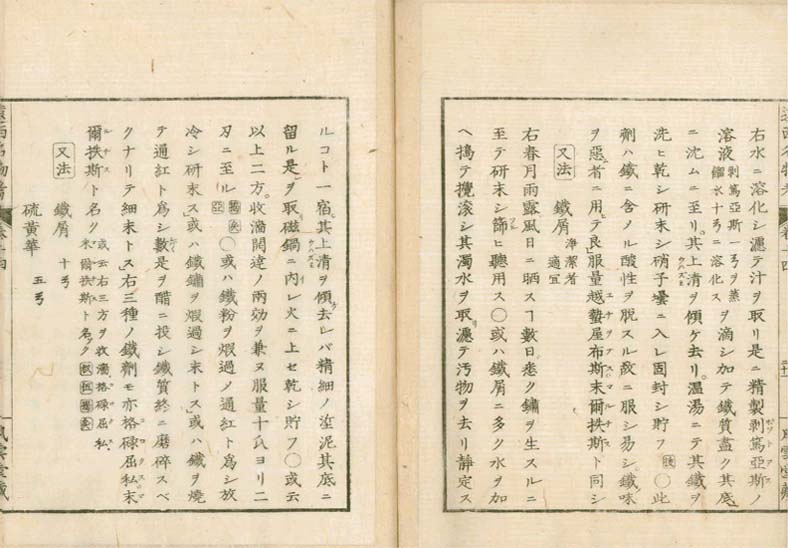 右水ニ溶化シ濾テ汁ヲ取リ是ニ精製剥篤亞斯ノ
溶液 剥篤亞斯一ヲ蒸餾水十ニ溶化ス ヲ滴シ加テ鐵質盡ク其底
ニ沈ムニ至リ其上清ヲ傾ケ去リ温湯ニテ其鐵ヲ
洗ヒ乾シ研末シ硝子壜ニ入レ固封シ貯フ ○此
劑ハ鐵ニ含ノル酸性ヲ脱スル故ニ服シ易シ鐵味
ヲ惡者ニ用テ良服量越蟄屋布斯末爾扶斯ト同シ
又法 鐵屑 浄潔者 適宜
右春月雨露風日ニ晒スヿ數日悉ク鏽ヲ生スルニ
至テ研末シ篩ヒ聽用ス○或ハ鐵屑ニ多ク水ヲ加
ヘ搗テ攪滚シ其濁水ヲ取濾テ汚物ヲ去リ静定ス
ルコト一宿其上清ヲ傾去レバ精細ノ泥其底ニ
留ル是ヲ取磁鍋ニ内レ火ニ上セ乾シ貯フ○或云
以上二方收濇開達ノ兩効ヲ兼ヌ服量十氏ヨリ二
刄ニ至ル ○或ハ鐵粉ヲ煆過メ通紅ト爲シ放
冷シ研末ス或ハ鐵鏽ヲ煆過シ末トス或ハ鐵ヲ燒
テ過紅ト爲シ數是ヲ醋ニ投シ鐵質終ニ磨碎スベ
クナリテ細末トス右三種ノ鐵劑モ亦格碌屈私末
爾扶斯ト名ク 或云右三方ヲ收濇格碌屈私末爾扶斯ト名ク
又法 鐵屑 十
硫黄華 五